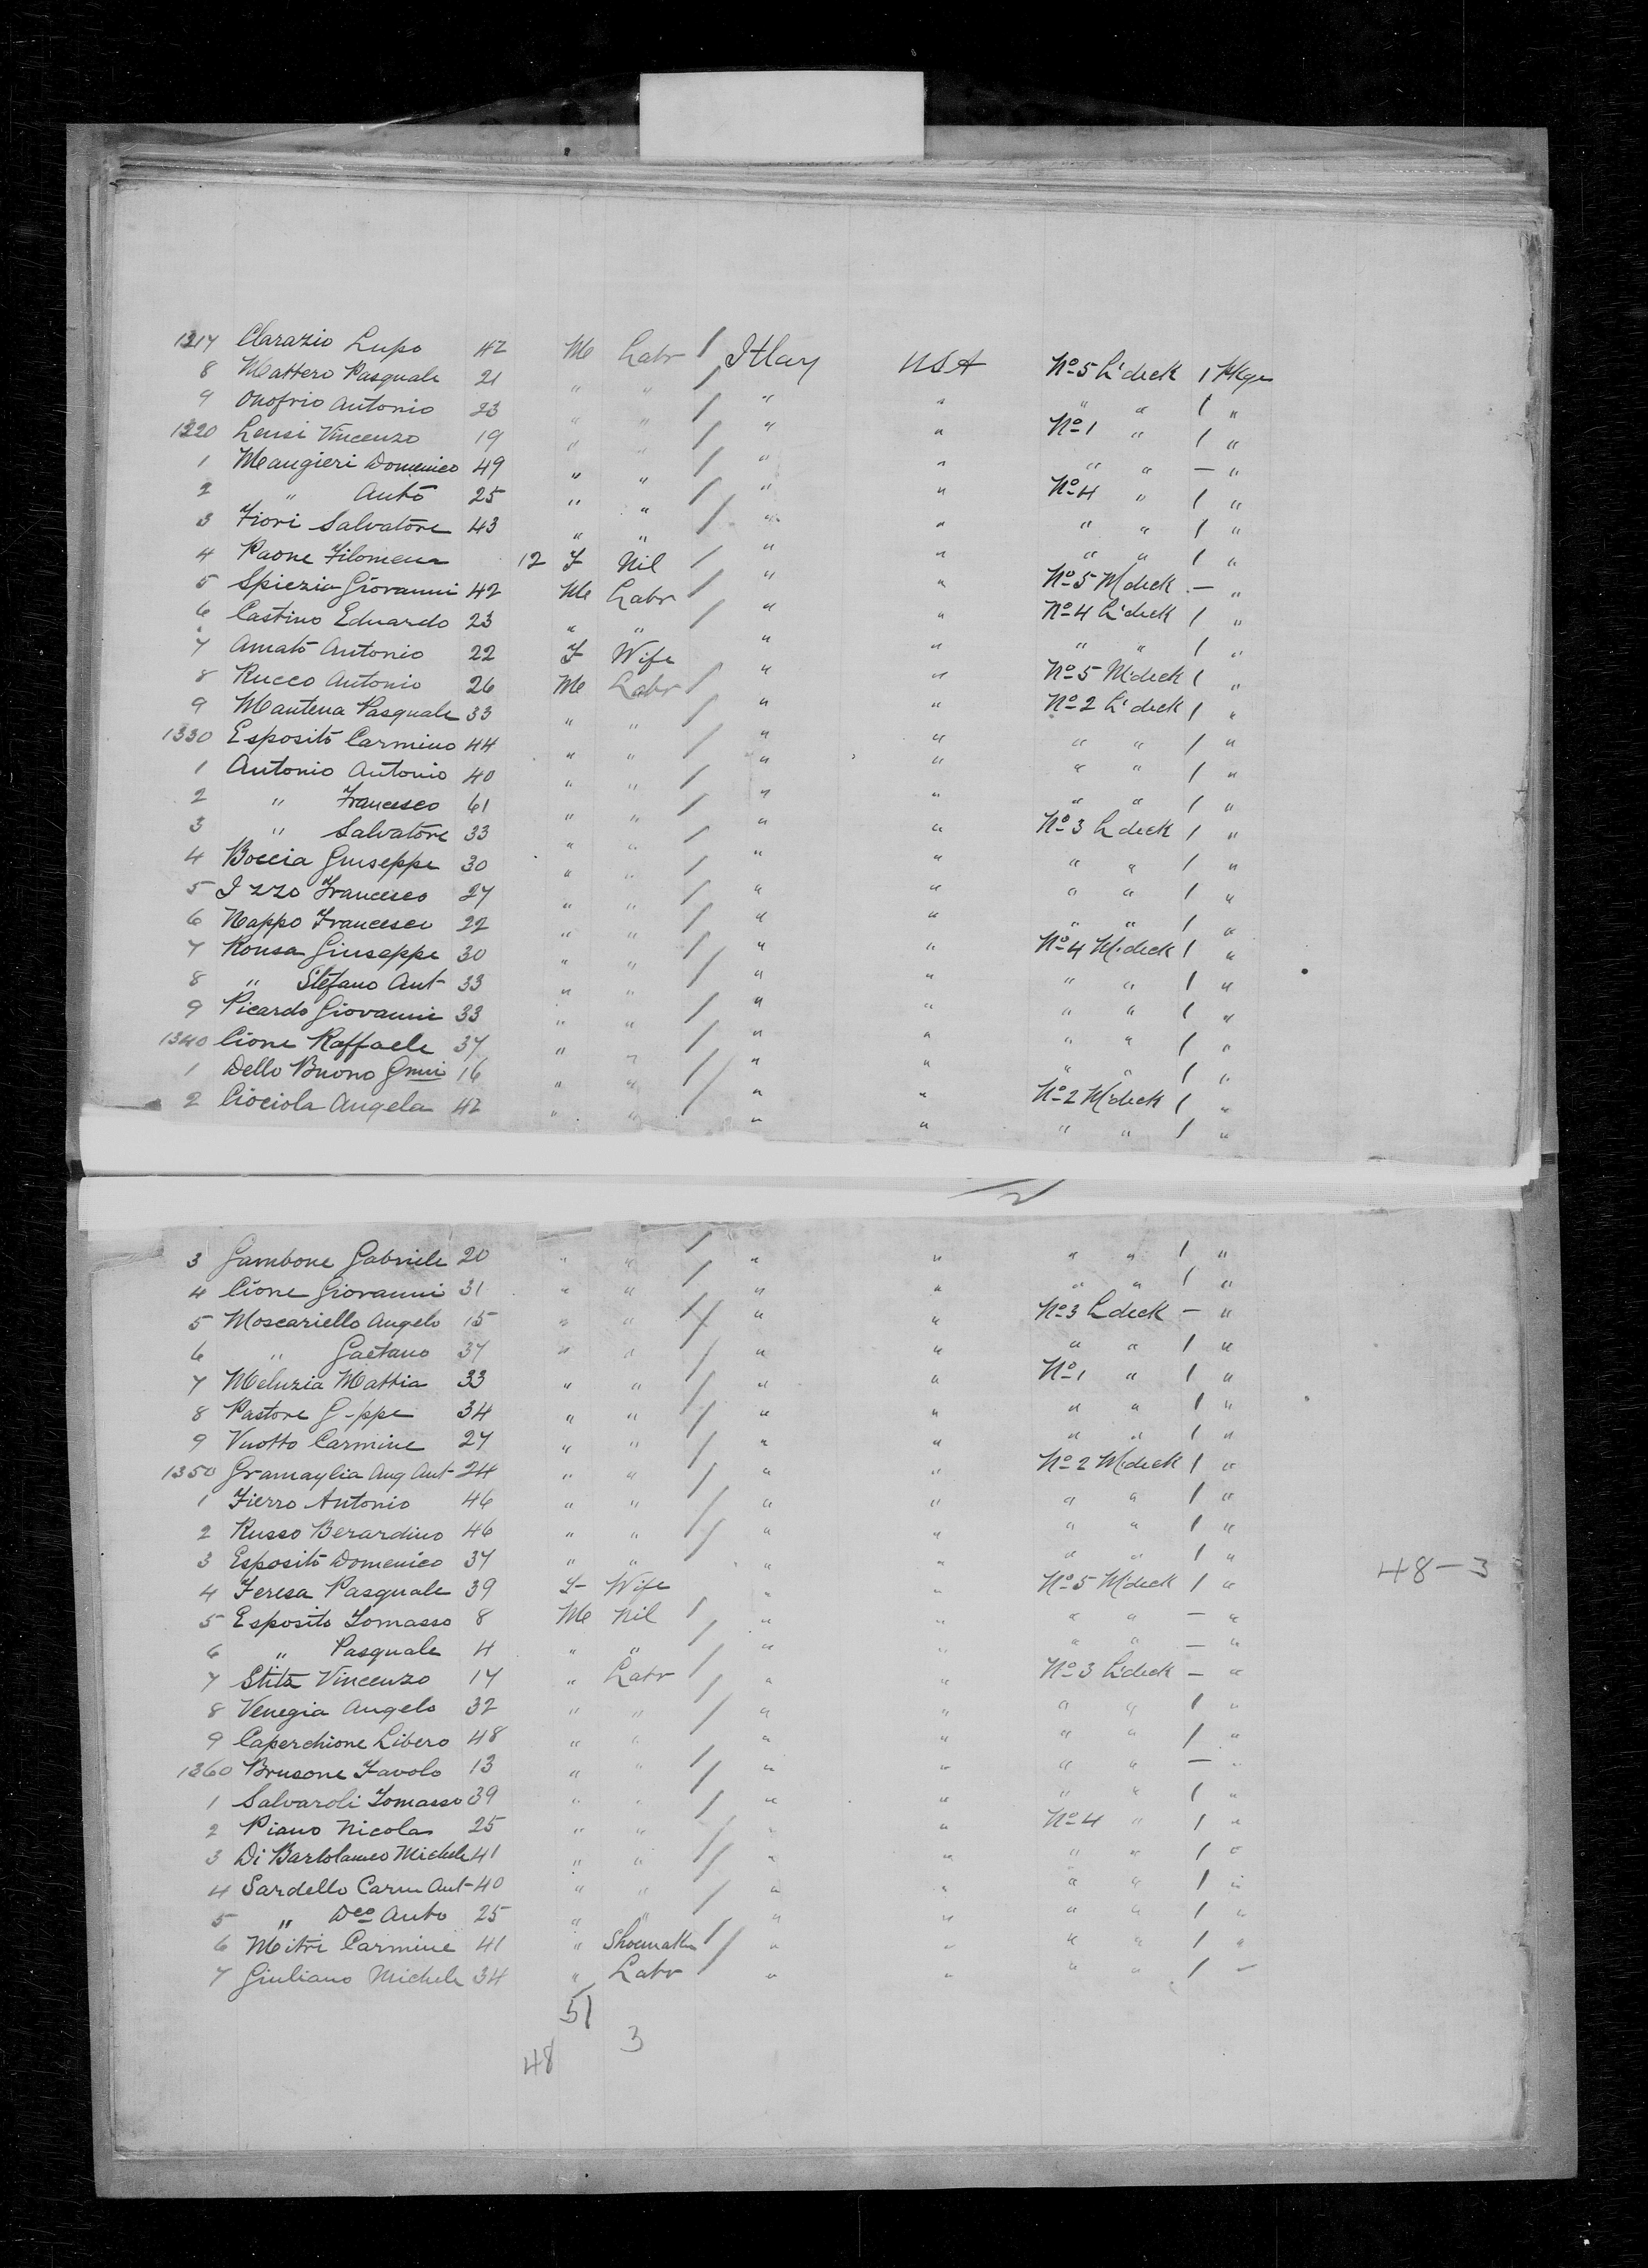 1317 Clarazio Lupo 42 Me Labr / Itlay USA No 5 L'deck 1 Pkge
8 Mattero Pasquale 21 " " / " " " " 1 "
9 Onofrio Antonio 23 " " / " " No 1 " 1 "
1320 Lensi Vincenzo 19 " " / " " " " — "
1 Mangieri Domenico 49 " " / " " No 4 " 1 "
2 " Anto 25 " " / " " " " 1 "
3 Fiori Salvatore 43 " " / " " " " 1 "
4 Paone Filomena 12 F Nil / " " No 5 M deck — "
5 Spiezia Giovanni 42 Me Labr / " " No 4 L'deck 1 "
6 Castino Eduardo 23 " " / " " " " 1 "
7 Amato Antonio 22 F Wife " " No 5 M'deck 1 "
8 Rucco Antonio 26 Me Labr / " " No 2 L'deck 1 "
9 Mantena Pasquale 33 " " / " " " " 1 "
1330 Esposito Carmino 44 " " / " " " " 1 "
1 Antonio Antonio 40 " " / " " " " 1 "
2 " Francesco 61 " " / " " No 3 L deck 1 "
3 " Salvatore 33 " " / " " " " 1 "
4 Boccia Giuseppe 30 " " / " " " " 1 "
5 Izzo Francesco 27 " " / " " " " 1 "
6 Nappo Francesco 22 " " / " " No 4 M.deck 1 "
7 Ronsa Giuseppe 30 " " / " " " " 1 "
8 " Stefano Ant- 33 " " / " " " " 1 "
9 Picardo Giovanni 33 " " / " " " " 1 "
1340 Cione Raffaele 37 " " / " " " " 1 "
1 Dello Buono Gnni 16 " " / " " No 2 M'deck 1 "
2 Ciociola Angela 42 " " / " " " " 1 "
3 Gambone Gabriele 20 " " / " " " " 1 "
4 Cione Giovanni 31 " " / " " " " 1 "
5 Moscariello Angelo 15 " " / " " No 3 L deck — "
6 " Gaetano 37 " " / " " " " 1 "
7 Meluzia Mattia 33 " " / " " No 1 " 1 "
8 Pastore G-ppe 34 " " / " " " " 1 "
9 Vuotto Carmine 27 " " / " " " " 1 "
1350 Gramaglia Ang Ant- 24 " " / " " No 2 M.deck 1 "
1 Fierro Antonio 46 " " / " " " " 1 "
2 Russo Berardino 46 " " / " " " " 1 "
3 Esposito Domenico 37 " " / " " " " 1 " 48-3
4 Teresa Pasquale 39 F Wife " " No 5 M'deck 1 "
5 Esposito Tomasso 8 Me Nil / " " " " — "
6 " Pasquale 4 " " / " " " " — "
7 Stita Vincenzo 17 " Labr / " " No 3 L'deck — "
8 Venegia Angelo 32 " " / " " " " 1 "
9 Caperchione Libero 48 " " / " " " " 1 "
1360 Brusone Favolo 13 " " / " " " " — "
1 Salvaroli Tomasso 39 " " / " " " " 1 "
2 Piano Nicola 25 " " / " " No 4 " 1 "
3 Di Bartolameo Michele 41 " " / " " " " 1 "
4 Sardello Carm Ant- 40 " " / " " " " 1 "
5 " Dco Anto 25 " " / " " " " 1 "
6 Mitri Carmine 41 " Shoemaker / " " " " 1 "
7 Giuliano Michele 34 " Labr / " " " " 1 "
51
48 3